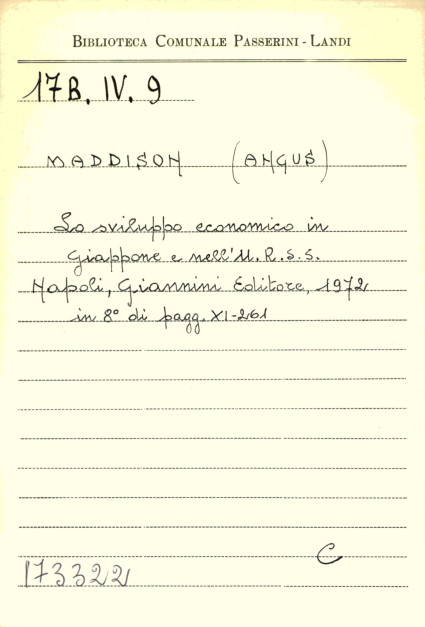 BIBLIOTECA COMUNALE PASSERINI - LANDI
17B. IV. 9
MADDISON (ANGUS)
Lo sviluppo economico in
Giappone e nell'U.R.S.S.
Napoli, Giannini Editore, 1972
in 8° di pagg. XI-261
C
173322